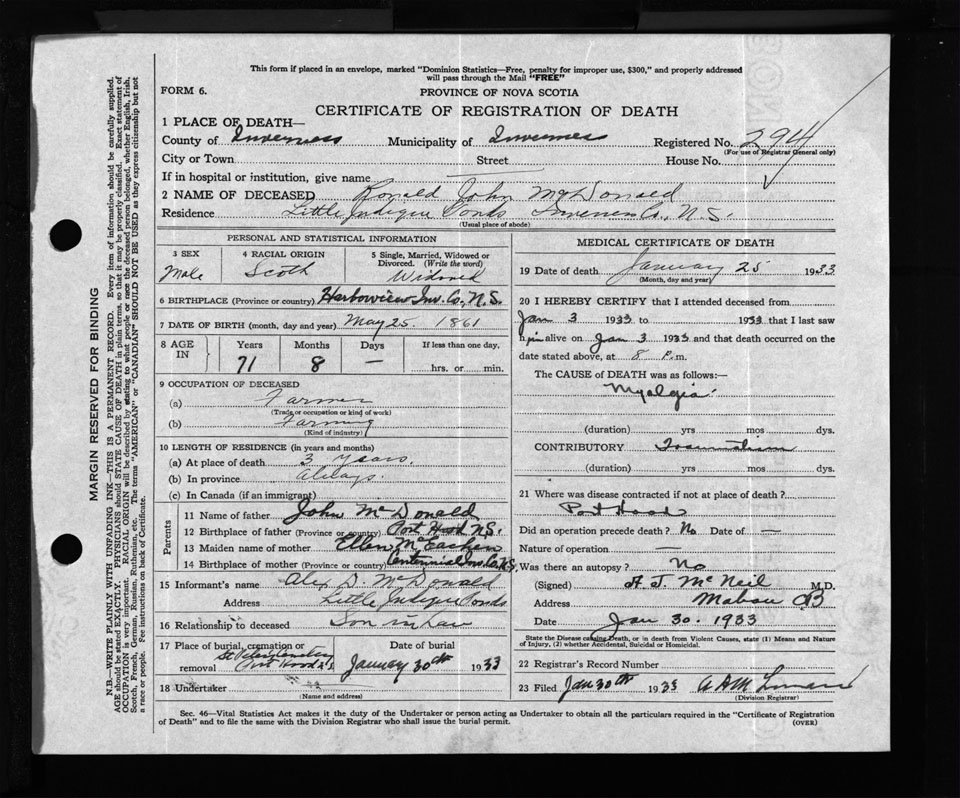 This form if placed in an envelope, marked "Dominion Statistics—Free, penalty for improper use, $300," and properly addressed
will pass through the Mail "FREE"
FORM 6.
PROVINCE OF NOVA SCOTIA
CERTIFICATE OF REGISTRATION OF DEATH
1 PLACE OF DEATH—
County of Inverness Municipality of Inverness Registered No. 294
(For use of Registrar General only)
City or Town Street House No.
If in hospital or institution, give name
2 NAME OF DECEASED Ronald John McDonald
Residence Little Judique Ponds Inverness Co., N.S.
(Usual place of abode)
PERSONAL AND STATISTICAL INFORMATION
3 SEX 4 RACIAL ORIGIN 5 Single, Married, Widowed or
Divorced. (Write the word)
Male Scoth Widowed
6 BIRTHPLACE (Province or country) Harbowview Inv. Co., N.S.
7 DATE OF BIRTH (month, day and year) May 25. 1861
8 AGE IN Years Months Days If less than one day,
71 8 — hrs. or min.
9 OCCUPATION OF DECEASED
(a) Farmer
(Trade or occupation or kind of work)
(b) Farming
(Kind of industry)
10 LENGTH OF RESIDENCE (in years and months)
(a) At place of death 3 years.
(b) In province always.
(c) In Canada (if an immigrant)
Parents
11 Name of father John McDonald
12 Birthplace of father (Province or country) Port Hood N.S.
13 Maiden name of mother Ellen McEachen
14 Birthplace of mother (Province or country) Centennial Inv. Co. N.S.
15 Informant's name Alex D. McDonald
Address Little Judique Ponds
16 Relationship to deceased Son in law
17 Place of burial, cremation or removal St Peters Cemetery Port Hood N.S. Date of burial
January 30th 1933
18 Undertaker
(Name and address)
MEDICAL CERTIFICATE OF DEATH
19 Date of death January 25 1933
(Month, day and year)
20 I HEREBY CERTIFY that I attended deceased from
Jan 3 1933 to 1933 that I last saw
him alive on Jan 3 1933 and that death occurred on the
date stated above, at 8 P.m.
The CAUSE of DEATH was as follows:—
Myalgia
(duration) yrs mos dys.
CONTRIBUTORY
(duration) yrs mos dys.
21 Where was disease contracted if not at place of death?
Port Hood
Did an operation precede death? No Date of —
Nature of operation —
Was there an autopsy? No
(Signed) A. J. McNeil M.D.
Address Mabou CB
Date Jan 30. 1933
State the Disease causing Death, or in death from Violent Causes, state (1) Means and Nature
of Injury, (2) whether Accidental, Suicidal or Homicidal.
22 Registrar's Record Number
23 Filed Jan 30th 1933
(Division Registrar)
Sec. 46—Vital Statistics Act makes it the duty of the Undertaker or person acting as Undertaker to obtain all the particulars required in the "Certificate of Registration
of Death" and to file the same with the Division Registrar who shall issue the burial permit.
(OVER)
MARGIN RESERVED FOR BINDING
N.B.—WRITE PLAINLY WITH UNFADING INK—THIS IS A PERMANENT RECORD. Every item of information should be carefully supplied.
AGE should be stated EXACTLY. PHYSICIANS should STATE CAUSE OF DEATH in plain terms, so that it may be properly classified. Exact statement of
OCCUPATION is very important. RACIAL ORIGIN will be described by stating to what people or race the deceased person belonged, whether English, Irish,
Scotch, French, German, Russian, Ruthenian, etc. The terms "AMERICAN" or "CANADIAN" SHOULD NOT BE USED as they express citizenship but not
a race or people. Fee instructions on back of Certificate.